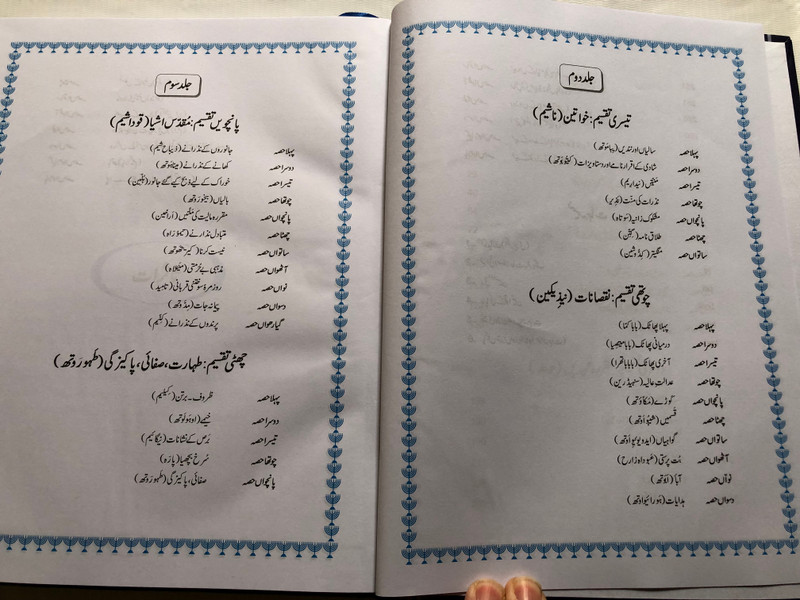 جلد دوم
تیسری تقسیم: خواتین (ناشیم)
پہلا حصہ سالیاں اور نندیں (یباموتھ)
دوسرا حصہ شادی کے اقرارنامے اور دستاویزات (کتیوبوتھ)
تیسرا حصہ مَنتیں (نیداریم)
چوتھا حصہ نذرات کی منت (نذیر)
پانچواں حصہ مشکوک زانیہ (سوتاہ)
چھٹا حصہ طلاق نامہ (گٹن)
ساتواں حصہ منگیتر (کِڈوشین)
چوتھی تقسیم: نقصانات (نیذیکین)
پہلا حصہ پہلا پھاٹک (بابا کما)
دوسرا حصہ درمیانی پھاٹک (بابا میصیا)
تیسرا حصہ آخری پھاٹک (بابا باتھرا)
چوتھا حصہ عدالت عالیہ (سنہیڈرین)
پانچواں حصہ کوڑے (مکاؤتھ)
چھٹا حصہ قَسمیں (شبُواوتھ)
ساتواں حصہ گواہیاں (ایدویوتھ)
آٹھواں حصہ بُت پرستی (عبوداہ زارح)
نواں حصہ آبا (اَووتھ)
دسواں حصہ ہدایات (ہورائیواوتھ)
جلد سوم
پانچویں تقسیم: مُقدّس اشیا (قوداشیم)
پہلا حصہ جانوروں کے نذرانے (ذیباح شیم)
دوسرا حصہ کھانے کے نذرانے (میناہوتھ)
تیسرا حصہ خوراک کے لیے ذبح کیے گئے جانور (ہلین)
چوتھا حصہ بالیاں (بیکورَوتھ)
پانچواں حصہ مقررہ مالیت کی منتیں (اَراخین)
چھٹا حصہ متبادل نذرانے (تیمؤراہ)
ساتواں حصہ نیست کرنا (کیریتھوتھ)
آٹھواں حصہ مذہبی بے حُرمتی (مئیلاہ)
نواں حصہ روزمرہ سوختنی قربانی (تامید)
دسواں حصہ پیمانہ جات (مِدّوتھ)
گیارھواں حصہ پرندوں کے نذرانے (کنّیم)
چھٹی تقسیم: طہارت، صفائی، پاکیزگی (طہوروتھ)
پہلا حصہ ظروف۔ برتن (کیلیم)
دوسرا حصہ خیمے (اوہولوتھ)
تیسرا حصہ بَرص کے نشانات (نیگائیم)
چوتھا حصہ سُرخ بچھیا (پارہ)
پانچواں حصہ صفائی، پاکیزگی (طہوروتھ)